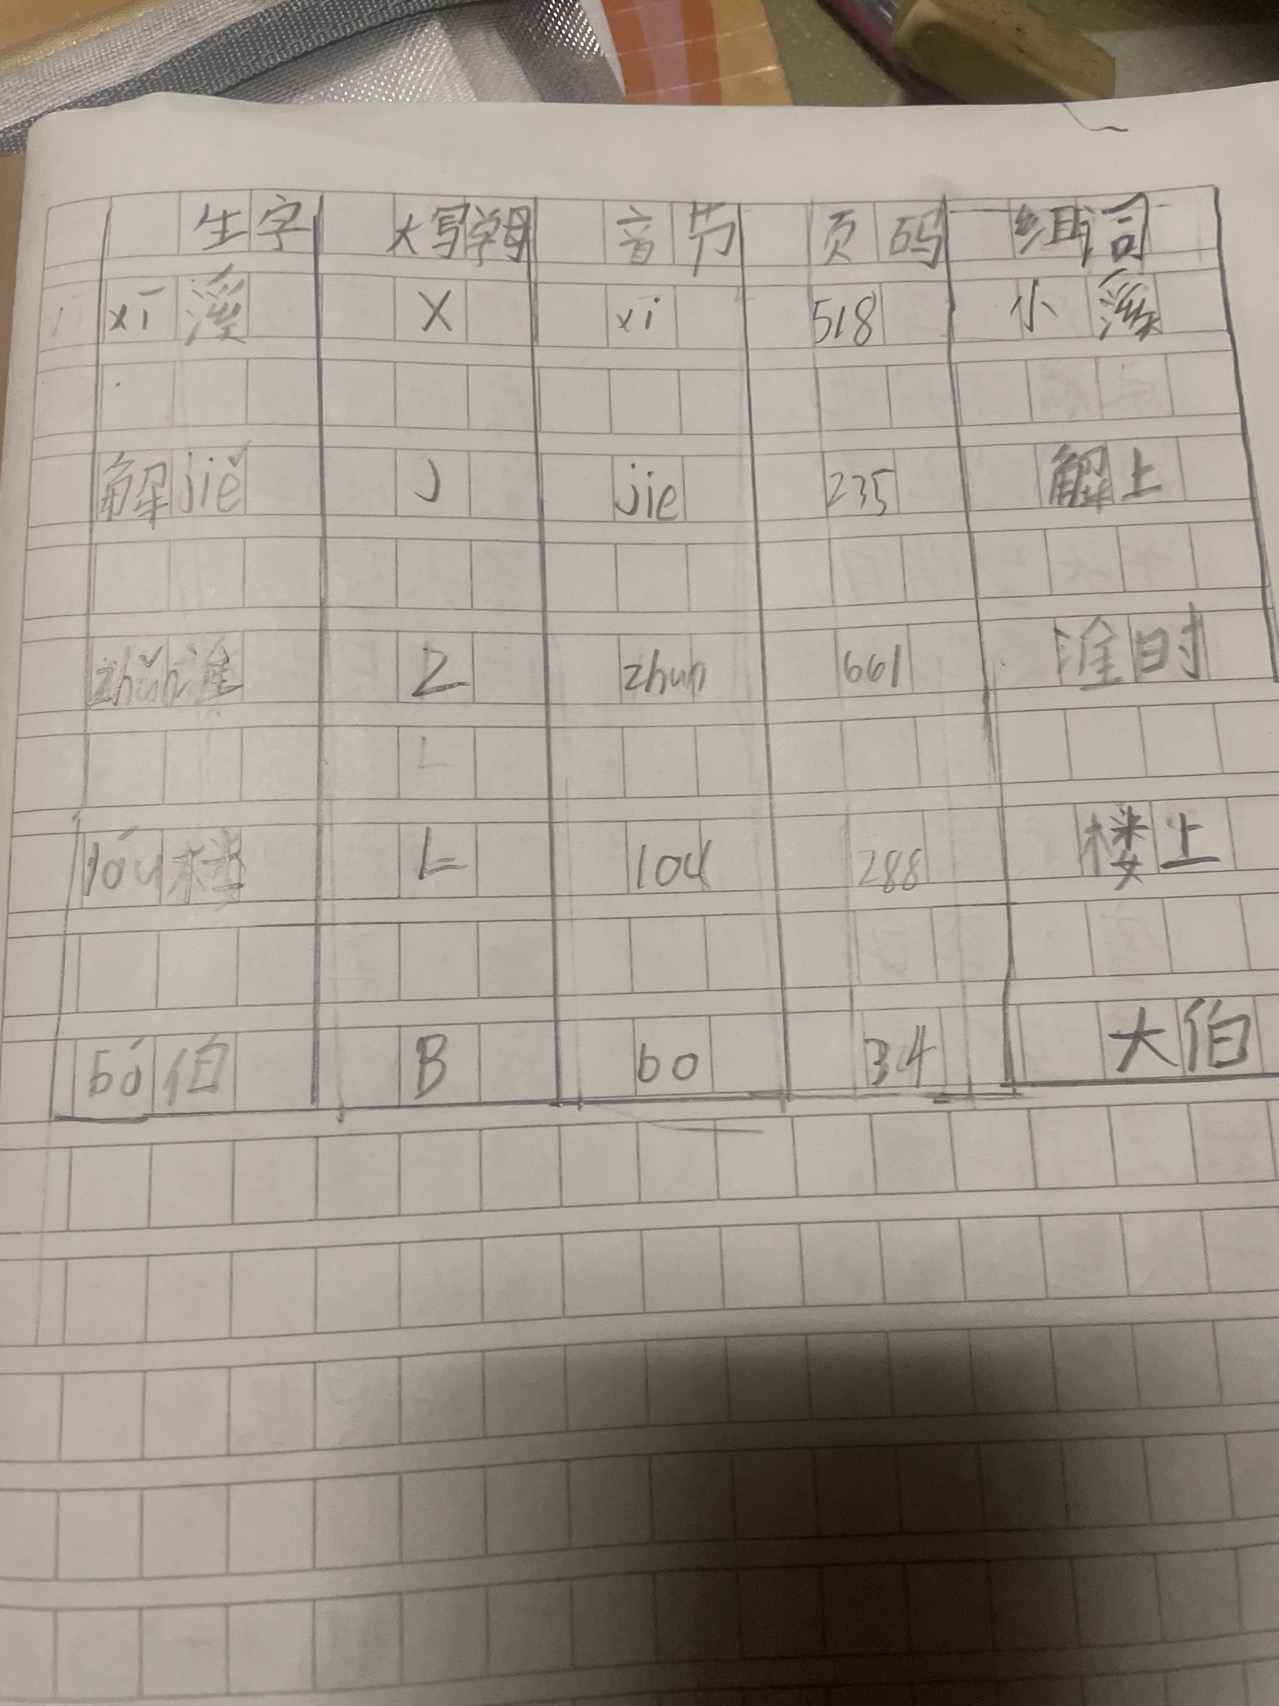 生字 大写字母 音节 页码 组词
xī 溪 X xi 518 小溪
解 jiě J jie 235 解上
zhǔn 准 Z zhun 661 准时
L
lóu 楼 L lou 288 楼上
bó 伯 B bo 34 大伯